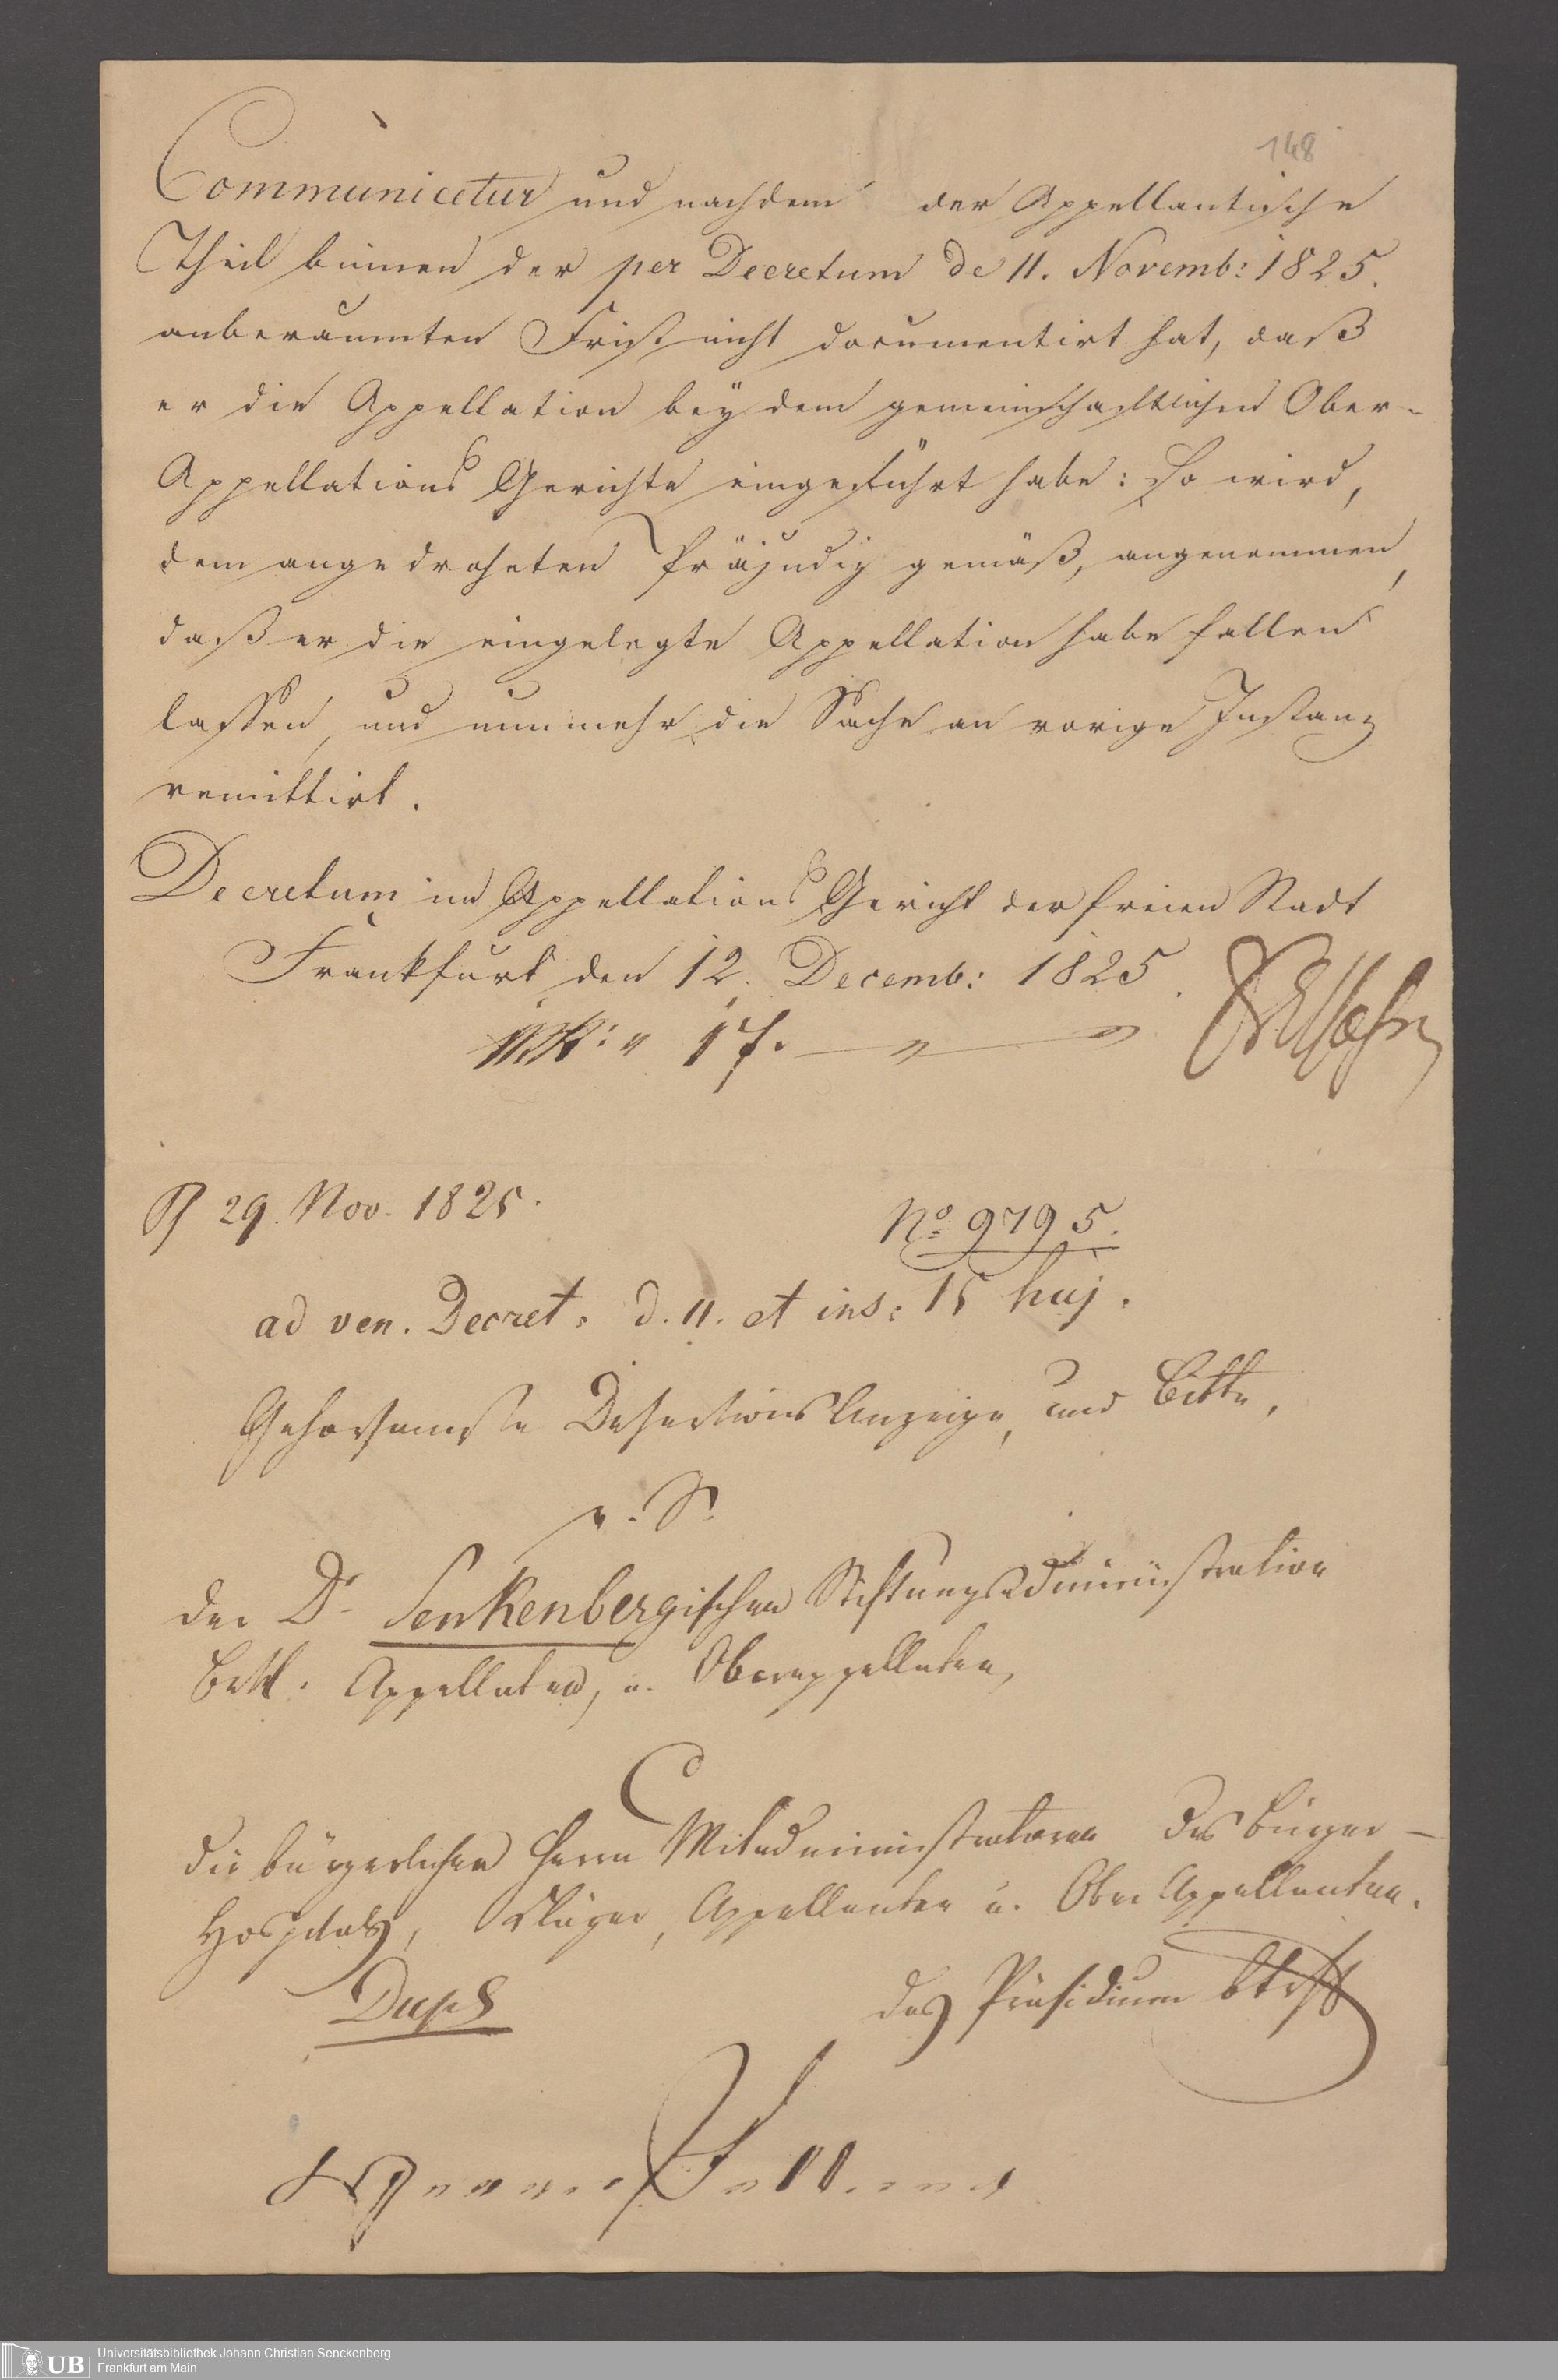 148
Communicetur und nachdem der Appellantische
Theil binnen der per Decretum de 11. Novemb: 1825.
anberaumten Frist nicht documentirt hat, daß
er die Appellation bey dem gemeinschaftlichen Ober-
Appellations Gerichte eingeführt habe: So wird,
dem angedroheten Präjudiz gemäß, angenommen,
daß er die eingelegte Appellation habe fallen
lassen, und nunmehr die Sache an vorige Instanz
remittirt.
Decretum im Appellations Gericht der freien Stadt
Frankfurt den 12. Decemb: 1825.
" 17. — " — "
29. Nov. 1825.
No. 9795.
ad ven. Decret: d. 11. et ins: 15 huj.
Gehorsamste Desertions Anzeige, und Bitte,
v. S.
der Dr Senkenbergischen Stiftungsadministration
Bekl. Appellaten, u. Oberappellaten,
C
die bürgerlichen Herrn Mitadministratoren des Bürger-
Hospitals, Kläger, Appellanten u. Ober Appellanten.
Dupl
das Präsidium
Universitätsbibliothek Johann Christian Senckenberg
Frankfurt am Main
UB